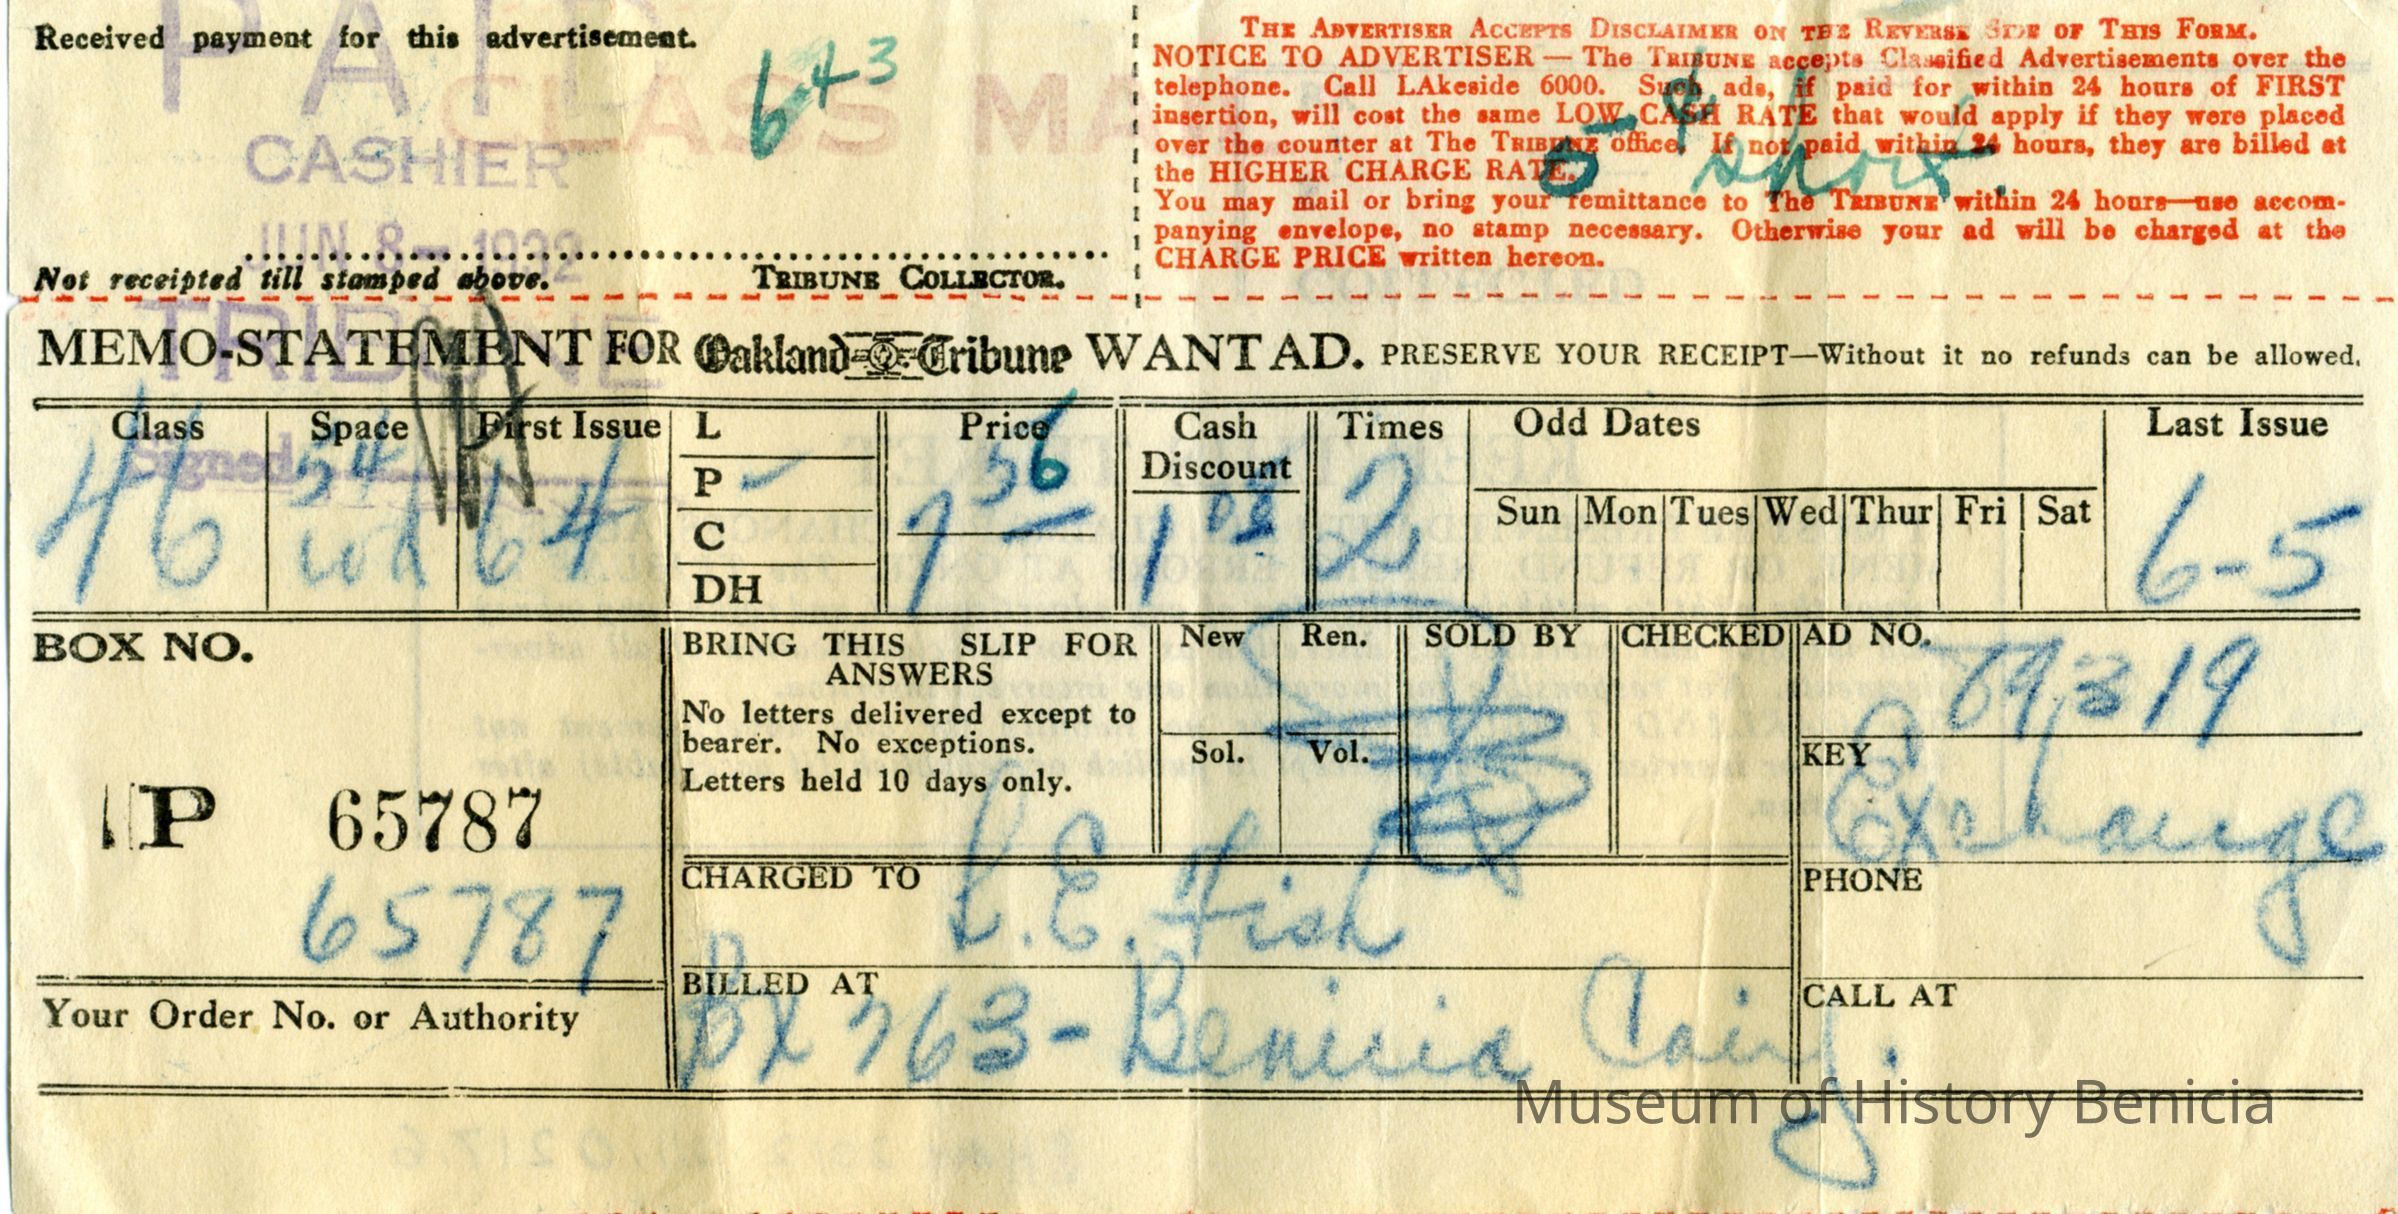 Received payment for this advertisement.
PAID
CLASS MA
CASHIER
JUN 8 - 1932
TRIBUNE
643
Not receipted till stamped above. TRIBUNE COLLECTOR.
THE ADVERTISER ACCEPTS DISCLAIMER ON THE REVERSE SIDE OF THIS FORM.
NOTICE TO ADVERTISER — The TRIBUNE accepts Classified Advertisements over the
telephone. Call LAkeside 6000. Such ads, if paid for within 24 hours of FIRST
insertion, will cost the same LOW CASH RATE that would apply if they were placed
over the counter at The TRIBUNE office. If not paid within 24 hours, they are billed at
the HIGHER CHARGE RATE.
You may mail or bring your remittance to The TRIBUNE within 24 hours—use accom-
panying envelope, no stamp necessary. Otherwise your ad will be charged at the
CHARGE PRICE written hereon.
5¢ short.
MEMO-STATEMENT FOR Oakland Tribune WANT AD. PRESERVE YOUR RECEIPT—Without it no refunds can be allowed.
Class Space First Issue L Price Cash Discount Times Odd Dates Last Issue
P
C
DH
Sun Mon Tues Wed Thur Fri Sat
46 54 wd 6 4 7 56 1 08 2 6-5
BOX NO.
P 65787
65787
Your Order No. or Authority
BRING THIS SLIP FOR
ANSWERS
No letters delivered except to
bearer. No exceptions.
Letters held 10 days only.
New Ren. SOLD BY CHECKED
Sol. Vol.
AD NO.
79319
KEY
Exchange
CHARGED TO
L. E. Fish
PHONE
BILLED AT
Bx 763 - Benicia Calif.
CALL AT
Museum of History Benicia